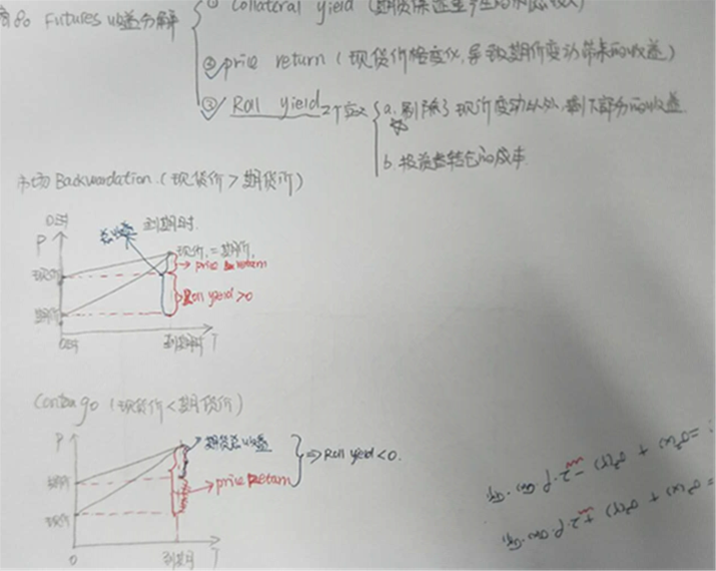 商品 Futures 收益分解
① Collateral yield (期货保证金产生的
② price return (现货价格变化,导致期价变动带来的收益)
③ Roll yield 2个定义
a. 剔除了现价变动以外,剩下部分的收益
b. 投资者转仓的成本
市场 Backwardation (现货价>期货价)
0时
到期时
P
总收益
现价=期价
现货价
price return
期货价
Roll yield>0
0时
到期时 T
Contango (现货价<期货价)
P
期货总收益
⇒Roll yield<0.
期价
price return
现价
0
到期日 T